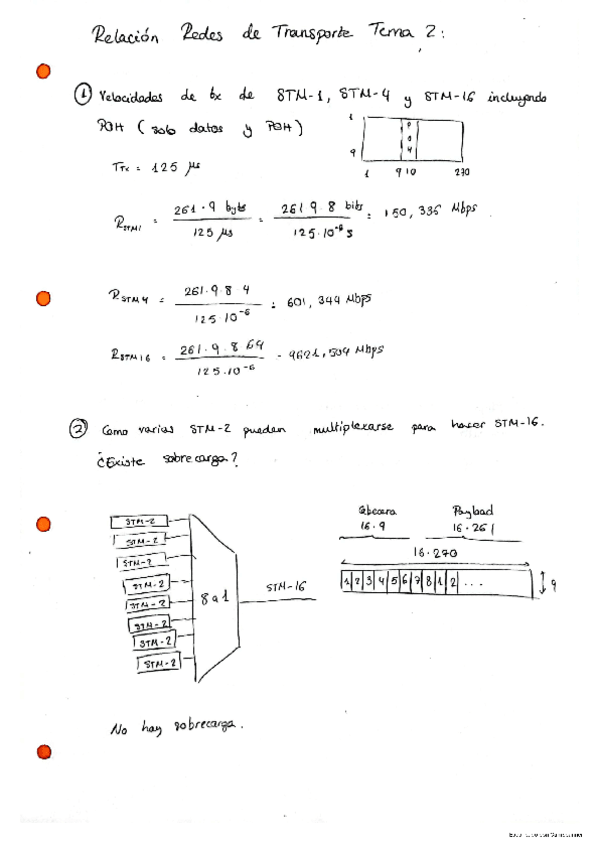 Relación Redes de Transporte Tema 2:
① Velocidades de tx de STM-1, STM-4 y STM-16 incluyendo
POH (solo datos y POH)
1
9
P
O
H
1 9 10 270
Ttx = 125 μs
RSTM1 = 261·9 byts / 125 μs = 261 9 8 bits / 125·10⁻⁶ s = 150,336 Mbps
RSTM4 = 261·9·8 4 / 125·10⁻⁶ = 601,344 Mbps
RSTM16 = 261·9·8 64 / 125·10⁻⁶ = 9621,504 Mbps
② Como varias STM-2 pueden multiplexarse para hacer STM-16.
¿Existe sobrecarga?
STM-2
STM-2
STM-2
STM-2
STM-2
STM-2
STM-2
STM-2
8 a 1
STM-16
Cabecera Payload
16·9 16·261
16·270
1 2 3 4 5 6 7 8 1 2 ...
9
No hay sobrecarga.